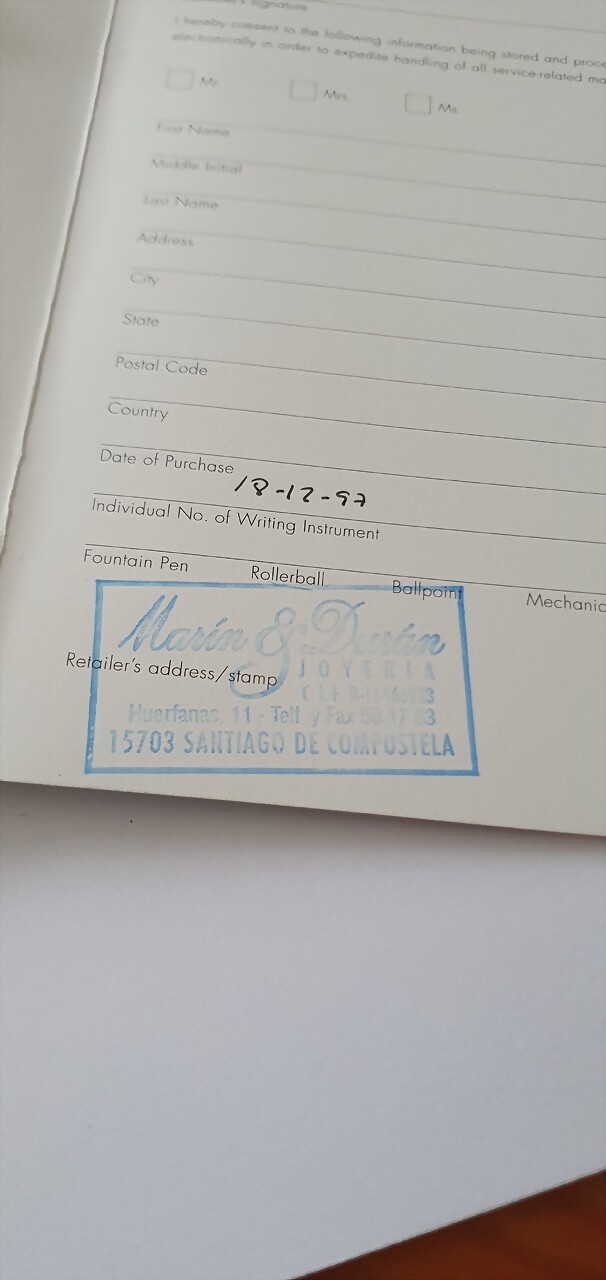 signature
I hereby consent to the following information being stored and
electronically in order to expedite handling of all service-related
Mr Mrs Ms
First Name
Middle Initial
Last Name
Address
City
State
Postal Code
Country
Date of Purchase
18-12-97
Individual No. of Writing Instrument
Fountain Pen Rollerball Ballpoint
Marín & Durán
Retailer's address/stamp
JOYERIA
C.I.F.
Huerfanas, 11 - Telf y Fax 58 17 83
15703 SANTIAGO DE COMPOSTELA